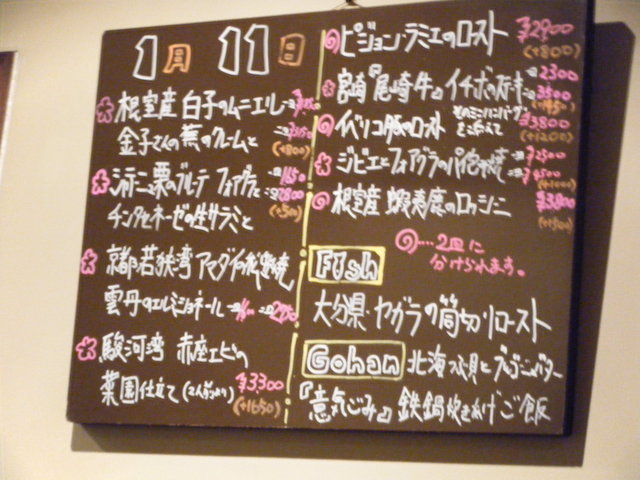 1月 11日
根室産 白子のムニエル
金子さんの蕪のクレームと
(+800)
栗のブルーテ フォアグラと
チンタセネーゼの生サラミと
(+500)
京都若狭湾 アマダイの
雲丹のエルミジョネール
駿河湾 赤座エビの
菜園仕立て (2人前より) ¥3,300
(+1650)
ピジョン・ラミエのロースト ¥2900
(+800)
宮崎『尾崎牛』イチボのステーキ 2300
3500
イベリコ豚のロースト そのミニハンバーグを添えて ¥3800
(+1200)
ジビエとフォアグラのパイ包み焼 2500
4500
(+1000)
根室産 蝦夷鹿のロッシーニ ¥3,800
(+1500)
・・・2皿に
分けられます。
Fish
大分県・ヤガラの筒切りロースト
Gohan 北海つぶ貝とブルゴーニュバター
『意気ごみ』鉄鍋炊きあげご飯